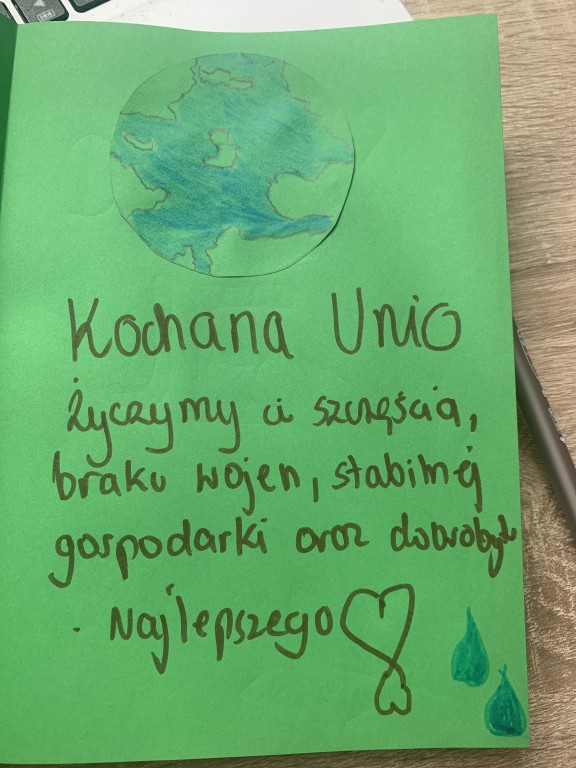 Kochana Unio
życzymy ci szczęścia,
braku wojen, stabilnej
gospodarki oraz dobrobytu
. Najlepszego